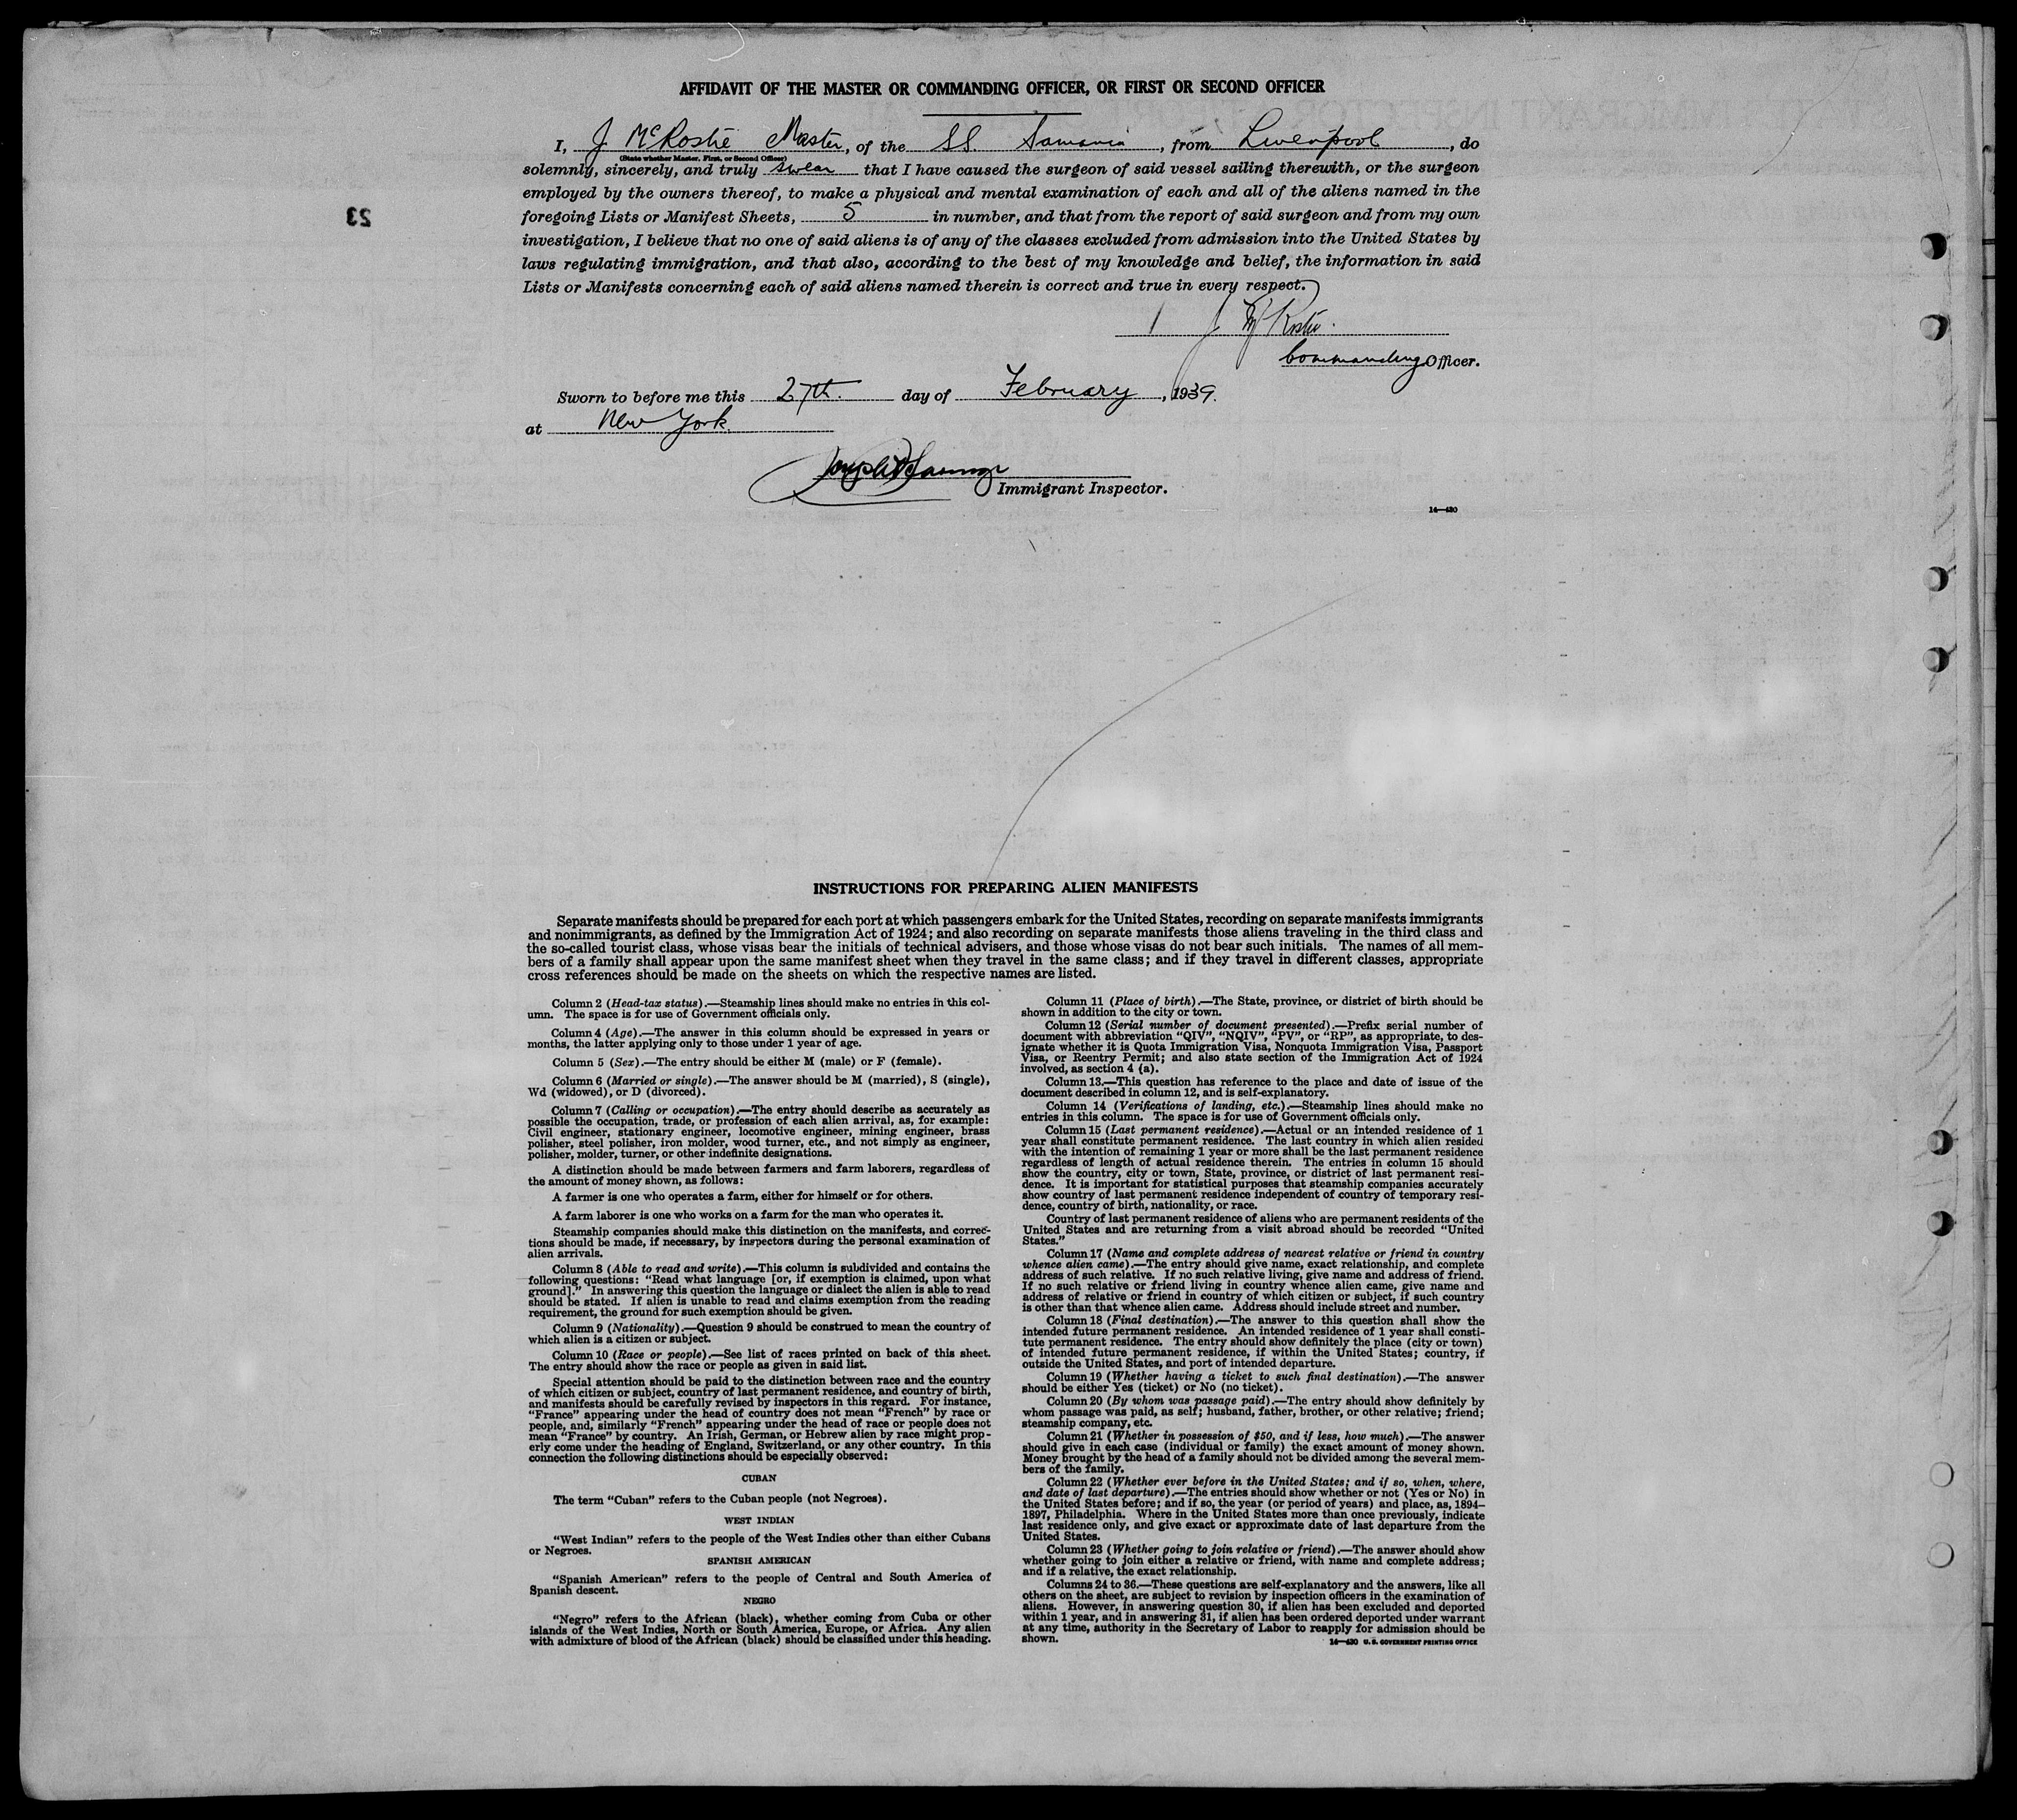 AFFIDAVIT OF THE MASTER OR COMMANDING OFFICER, OR FIRST OR SECOND OFFICER
I, J McRostie Master, of the SS. Samaria, from Liverpool, do
(State whether Master, First, or Second Officer)
solemnly, sincerely, and truly swear that I have caused the surgeon of said vessel sailing therewith, or the surgeon
employed by the owners thereof, to make a physical and mental examination of each and all of the aliens named in the
foregoing Lists or Manifest Sheets, 5 in number, and that from the report of said surgeon and from my own
investigation, I believe that no one of said aliens is of any of the classes excluded from admission into the United States by
laws regulating immigration, and that also, according to the best of my knowledge and belief, the information in said
Lists or Manifests concerning each of said aliens named therein is correct and true in every respect.
23
J McRostie.
Commanding Officer.
Sworn to before me this 27th. day of February, 1939.
at New York.
Immigrant Inspector.
14—430
INSTRUCTIONS FOR PREPARING ALIEN MANIFESTS
Separate manifests should be prepared for each port at which passengers embark for the United States, recording on separate manifests immigrants
and nonimmigrants, as defined by the Immigration Act of 1924; and also recording on separate manifests those aliens traveling in the third class and
the so-called tourist class, whose visas bear the initials of technical advisers, and those whose visas do not bear such initials. The names of all mem-
bers of a family shall appear upon the same manifest sheet when they travel in the same class; and if they travel in different classes, appropriate
cross references should be made on the sheets on which the respective names are listed.
Column 2 (Head-tax status).—Steamship lines should make no entries in this col-
umn. The space is for use of Government officials only.
Column 4 (Age).—The answer in this column should be expressed in years or
months, the latter applying only to those under 1 year of age.
Column 5 (Sex).—The entry should be either M (male) or F (female).
Column 6 (Married or single).—The answer should be M (married), S (single),
Wd (widowed), or D (divorced).
Column 7 (Calling or occupation).—The entry should describe as accurately as
possible the occupation, trade, or profession of each alien arrival, as, for example:
Civil engineer, stationary engineer, locomotive engineer, mining engineer, brass
polisher, steel polisher, iron molder, wood turner, etc., and not simply as engineer,
polisher, molder, turner, or other indefinite designations.
A distinction should be made between farmers and farm laborers, regardless of
the amount of money shown, as follows:
A farmer is one who operates a farm, either for himself or for others.
A farm laborer is one who works on a farm for the man who operates it.
Steamship companies should make this distinction on the manifests, and correc-
tions should be made, if necessary, by inspectors during the personal examination of
alien arrivals.
Column 8 (Able to read and write).—This column is subdivided and contains the
following questions: "Read what language [or, if exemption is claimed, upon what
ground]." In answering this question the language or dialect the alien is able to read
should be stated. If alien is unable to read and claims exemption from the reading
requirement, the ground for such exemption should be given.
Column 9 (Nationality).—Question 9 should be construed to mean the country of
which alien is a citizen or subject.
Column 10 (Race or people).—See list of races printed on back of this sheet.
The entry should show the race or people as given in said list.
Special attention should be paid to the distinction between race and the country
of which citizen or subject, country of last permanent residence, and country of birth,
and manifests should be carefully revised by inspectors in this regard. For instance,
"France" appearing under the head of country does not mean "French" by race or
people, and, similarly "French" appearing under the head of race or people does not
mean "France" by country. An Irish, German, or Hebrew alien by race might prop-
erly come under the heading of England, Switzerland, or any other country. In this
connection the following distinctions should be especially observed:
CUBAN
The term "Cuban" refers to the Cuban people (not Negroes).
WEST INDIAN
"West Indian" refers to the people of the West Indies other than either Cubans
or Negroes.
SPANISH AMERICAN
"Spanish American" refers to the people of Central and South America of
Spanish descent.
NEGRO
"Negro" refers to the African (black), whether coming from Cuba or other
islands of the West Indies, North or South America, Europe, or Africa. Any alien
with admixture of blood of the African (black) should be classified under this heading.
Column 11 (Place of birth).—The State, province, or district of birth should be
shown in addition to the city or town.
Column 12 (Serial number of document presented).—Prefix serial number of
document with abbreviation "QIV", "NQIV", "PV", or "RP", as appropriate, to des-
ignate whether it is Quota Immigration Visa, Nonquota Immigration Visa, Passport
Visa, or Reentry Permit; and also state section of the Immigration Act of 1924
involved, as section 4 (a).
Column 13.—This question has reference to the place and date of issue of the
document described in column 12, and is self-explanatory.
Column 14 (Verifications of landing, etc.).—Steamship lines should make no
entries in this column. The space is for use of Government officials only.
Column 15 (Last permanent residence).—Actual or an intended residence of 1
year shall constitute permanent residence. The last country in which alien resided
with the intention of remaining 1 year or more shall be the last permanent residence
regardless of length of actual residence therein. The entries in column 15 should
show the country, city or town, State, province, or district of last permanent resi-
dence. It is important for statistical purposes that steamship companies accurately
show country of last permanent residence independent of country of temporary resi-
dence, country of birth, nationality, or race.
Country of last permanent residence of aliens who are permanent residents of the
United States and are returning from a visit abroad should be recorded "United
States."
Column 17 (Name and complete address of nearest relative or friend in country
whence alien came).—The entry should give name, exact relationship, and complete
address of such relative. If no such relative living, give name and address of friend.
If no such relative or friend living in country whence alien came, give name and
address of relative or friend in country of which citizen or subject, if such country
is other than that whence alien came. Address should include street and number.
Column 18 (Final destination).—The answer to this question shall show the
intended future permanent residence. An intended residence of 1 year shall consti-
tute permanent residence. The entry should show definitely the place (city or town)
of intended future permanent residence, if within the United States; country, if
outside the United States, and port of intended departure.
Column 19 (Whether having a ticket to such final destination).—The answer
should be either Yes (ticket) or No (no ticket).
Column 20 (By whom was passage paid).—The entry should show definitely by
whom passage was paid, as self; husband, father, brother, or other relative; friend;
steamship company, etc.
Column 21 (Whether in possession of $50, and if less, how much).—The answer
should give in each case (individual or family) the exact amount of money shown.
Money brought by the head of a family should not be divided among the several mem-
bers of the family.
Column 22 (Whether ever before in the United States; and if so, when, where,
and date of last departure).—The entries should show whether or not (Yes or No) in
the United States before; and if so, the year (or period of years) and place, as, 1894–
1897, Philadelphia. Where in the United States more than once previously, indicate
last residence only, and give exact or approximate date of last departure from the
United States.
Column 23 (Whether going to join relative or friend).—The answer should show
whether going to join either a relative or friend, with name and complete address;
and if a relative, the exact relationship.
Columns 24 to 36.—These questions are self-explanatory and the answers, like all
others on the sheet, are subject to revision by inspection officers in the examination of
aliens. However, in answering question 30, if alien has been excluded and deported
within 1 year, and in answering 31, if alien has been ordered deported under warrant
at any time, authority in the Secretary of Labor to reapply for admission should be
shown.
14—430 U. S. GOVERNMENT PRINTING OFFICE